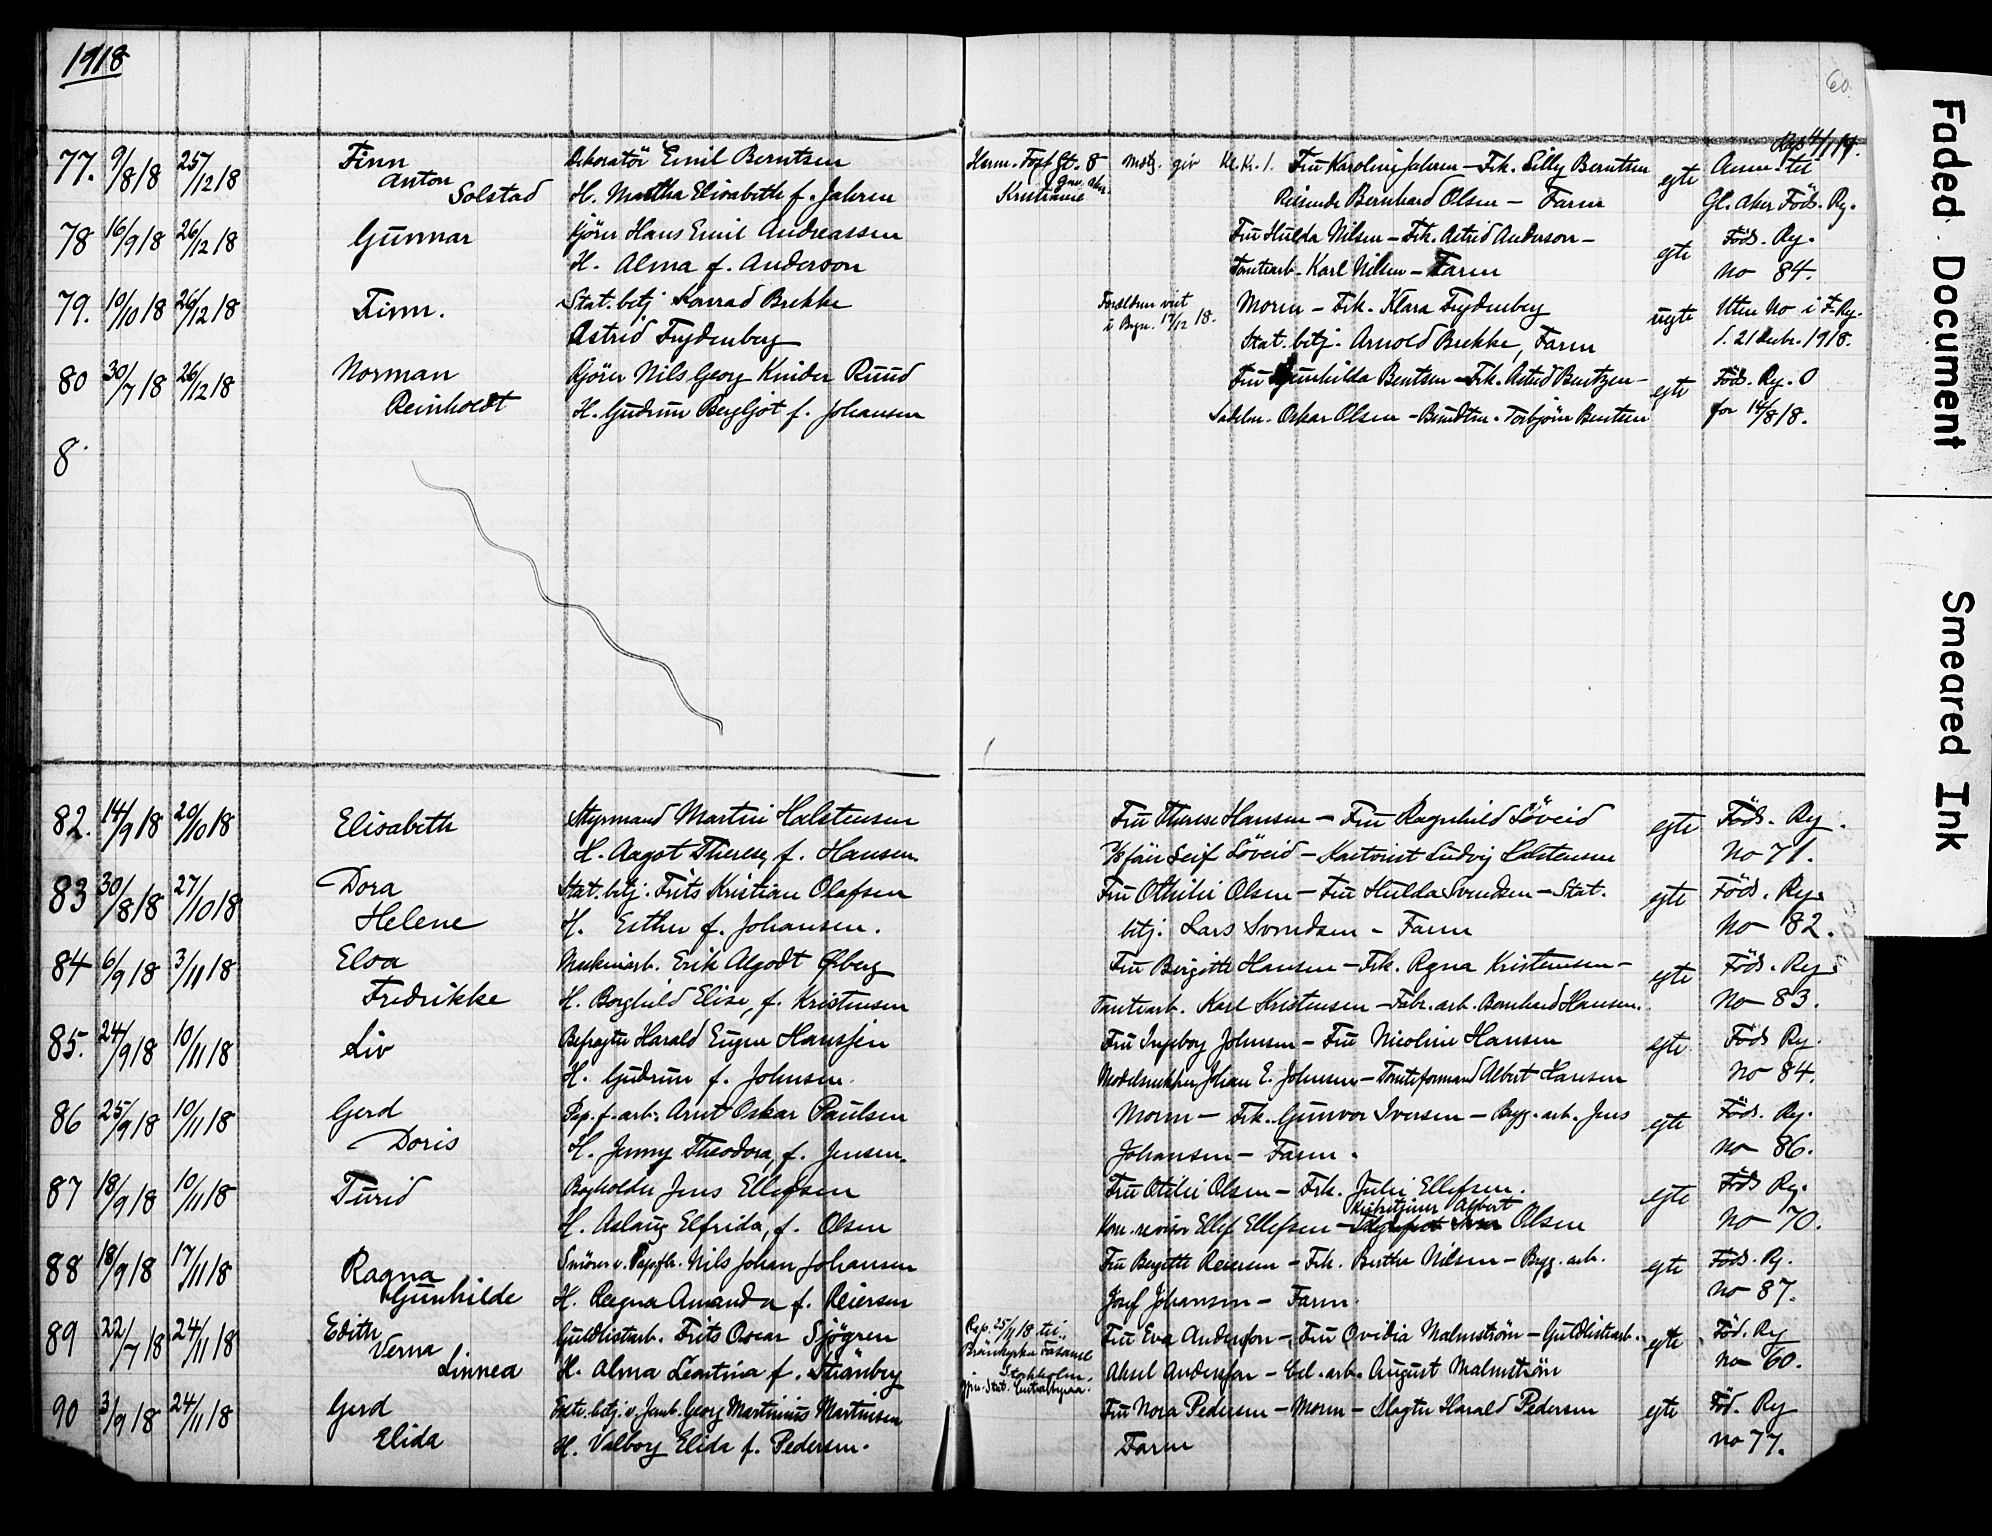 1918
60.
77. 9/8 18 25/12 18 Finn Anton Solstad
Dekoratör Emil Berntsen
H. Martha Elisabeth f. Jahren
Herm. Foss Gt. 8
Kristiania
Fru Karoline Jahren – Frk. Lilly Berntsen
Reisende Bernhard Olsen – Faren
egte
Gl. Aker Föds. Rg.
78 16/9 18 26/12 18 Gunnar
Kjörer Hans Emil Andreassen
H. Alma f. Anderson
Fru Hulda Nilsen – Frk. Astrid Anderson –
Tomtearb. Karl Nilsen – Faren
egte
Föds. Rg.
No 84.
79. 10/10 18 26/12 18 Finn.
Stat. betj. Konrad Brekke
Astrid Frydenberg
Foreldrene viet
i Bygn. 17/12 18.
Moren – Frk. Klara Frydenberg
Stat. betj. Arnold Brekke, Faren
uegte
Uten No i F. Rg.
d. 21 decbr. 1918.
80 30/7 18 26/12 18 Norman Reinholdt
Kjörer Nils Georg Kinder Ruud
H. Gudrun Bergljot f. Johansen
Fru Gunhilda Bentsen – Frk. Astrid Bentzen –
Sadelm. Oskar Olsen – Torbjörn Bentsen
egte
Föds. Rg. 0
for 14/8 18.
8
82. 14/9 18 20/10 18 Elisabeth
Styrmand Martin Halstensen
H. Aagot Therese, f. Hansen
Fru Therese Hansen – Fru Ragnhild Löveid
Leif Löveid – Ludvig Halstensen
egte
Föds. Rg.
No 71.
83 30/8 18 27/10 18 Dora Helene
Stat. betj. Frits Kristian Olafsen
H. Esther f. Johansen.
Fru Othilie Olsen – Fru Hulda Svendsen – Stat.
betj. Lars Svendsen – Faren
egte
Föds. Rg.
No 82.
84 6/9 18 3/11 18 Elsa Fredrikke
Maskinarb. Erik Algodt Øberg
H. Borghild Elise, f. Kristensen
Fru Birgitte Hansen – Frk. Agna Kristensen –
Tomtearb. Karl Kristensen – Fabr. arb. Bernhard Hansen.
egte
Föds. Rg.
No 83.
85. 24/9 18 10/11 18 Liv
Befragter Harald Eugen Hanssen
H. Gudrun f. Johnsen.
Fru Ingeborg Johnsen – Fru Nicoline Hansen
Modelsnekker Johan E. Johnsen – Tomteformand Albert Hansen
egte
Föds Rg.
No 84.
86 25/9 18 10/11 18 Gerd Doris
Pap. f. arb. Arnt Oskar Paulsen
H. Jenny Theodora, f. Jensen.
Moren – Frk. Gunvor Iversen – Bryg. arb. Jens
Johansen – Faren.
egte
Föds. Rg.
No 86.
87 18/9 18 10/11 18 Turid
Bogholder Jens Ellefsen
H. Aslaug Elfrida, f. Olsen
Fru Otilie Olsen – Frk. Julie Ellefsen.
Kom. revisor Ellef Ellefsen – Albert Olsen
egte
Föds Rg.
No 70.
88 18/9 18 17/11 18 Ragna Gunhilde
Smörer v. Papirfbr. Nils Johan Johansen
H. Ragna Amanda f. Reiersen
Fru Bergitte Reiersen – Frk. Berthe Nilsen – Bryg. arb.
Josef Johansen – Faren.
egte
Föds. Rg.
No 87.
89 22/7 18 24/11 18 Edith Verna Linnea
Guldlistarb. Frits Oscar Sjögren
H. Alma Leontina f. Thörnberg
Rep. 25/11 18 til
Brännkyrka
Stockholm.
Fru Eva Andersson – Fru Ovidia Malmström – Guldlistearb.
Aksel Andersson – Cel. arb. August Malmström
egte
Föd. Rg
No 60.
90 3/9 18 24/11 18 Gerd Elida
Extr. betj. v. Jernb. Georg Martinius Martinsen
H. Valborg Elida f. Pedersen.
Fru Nora Pedersen – Moren – Slagter Harald Pedersen
Faren
egte
Föd. Rg
No 77.
Faded Document
Smeared Ink